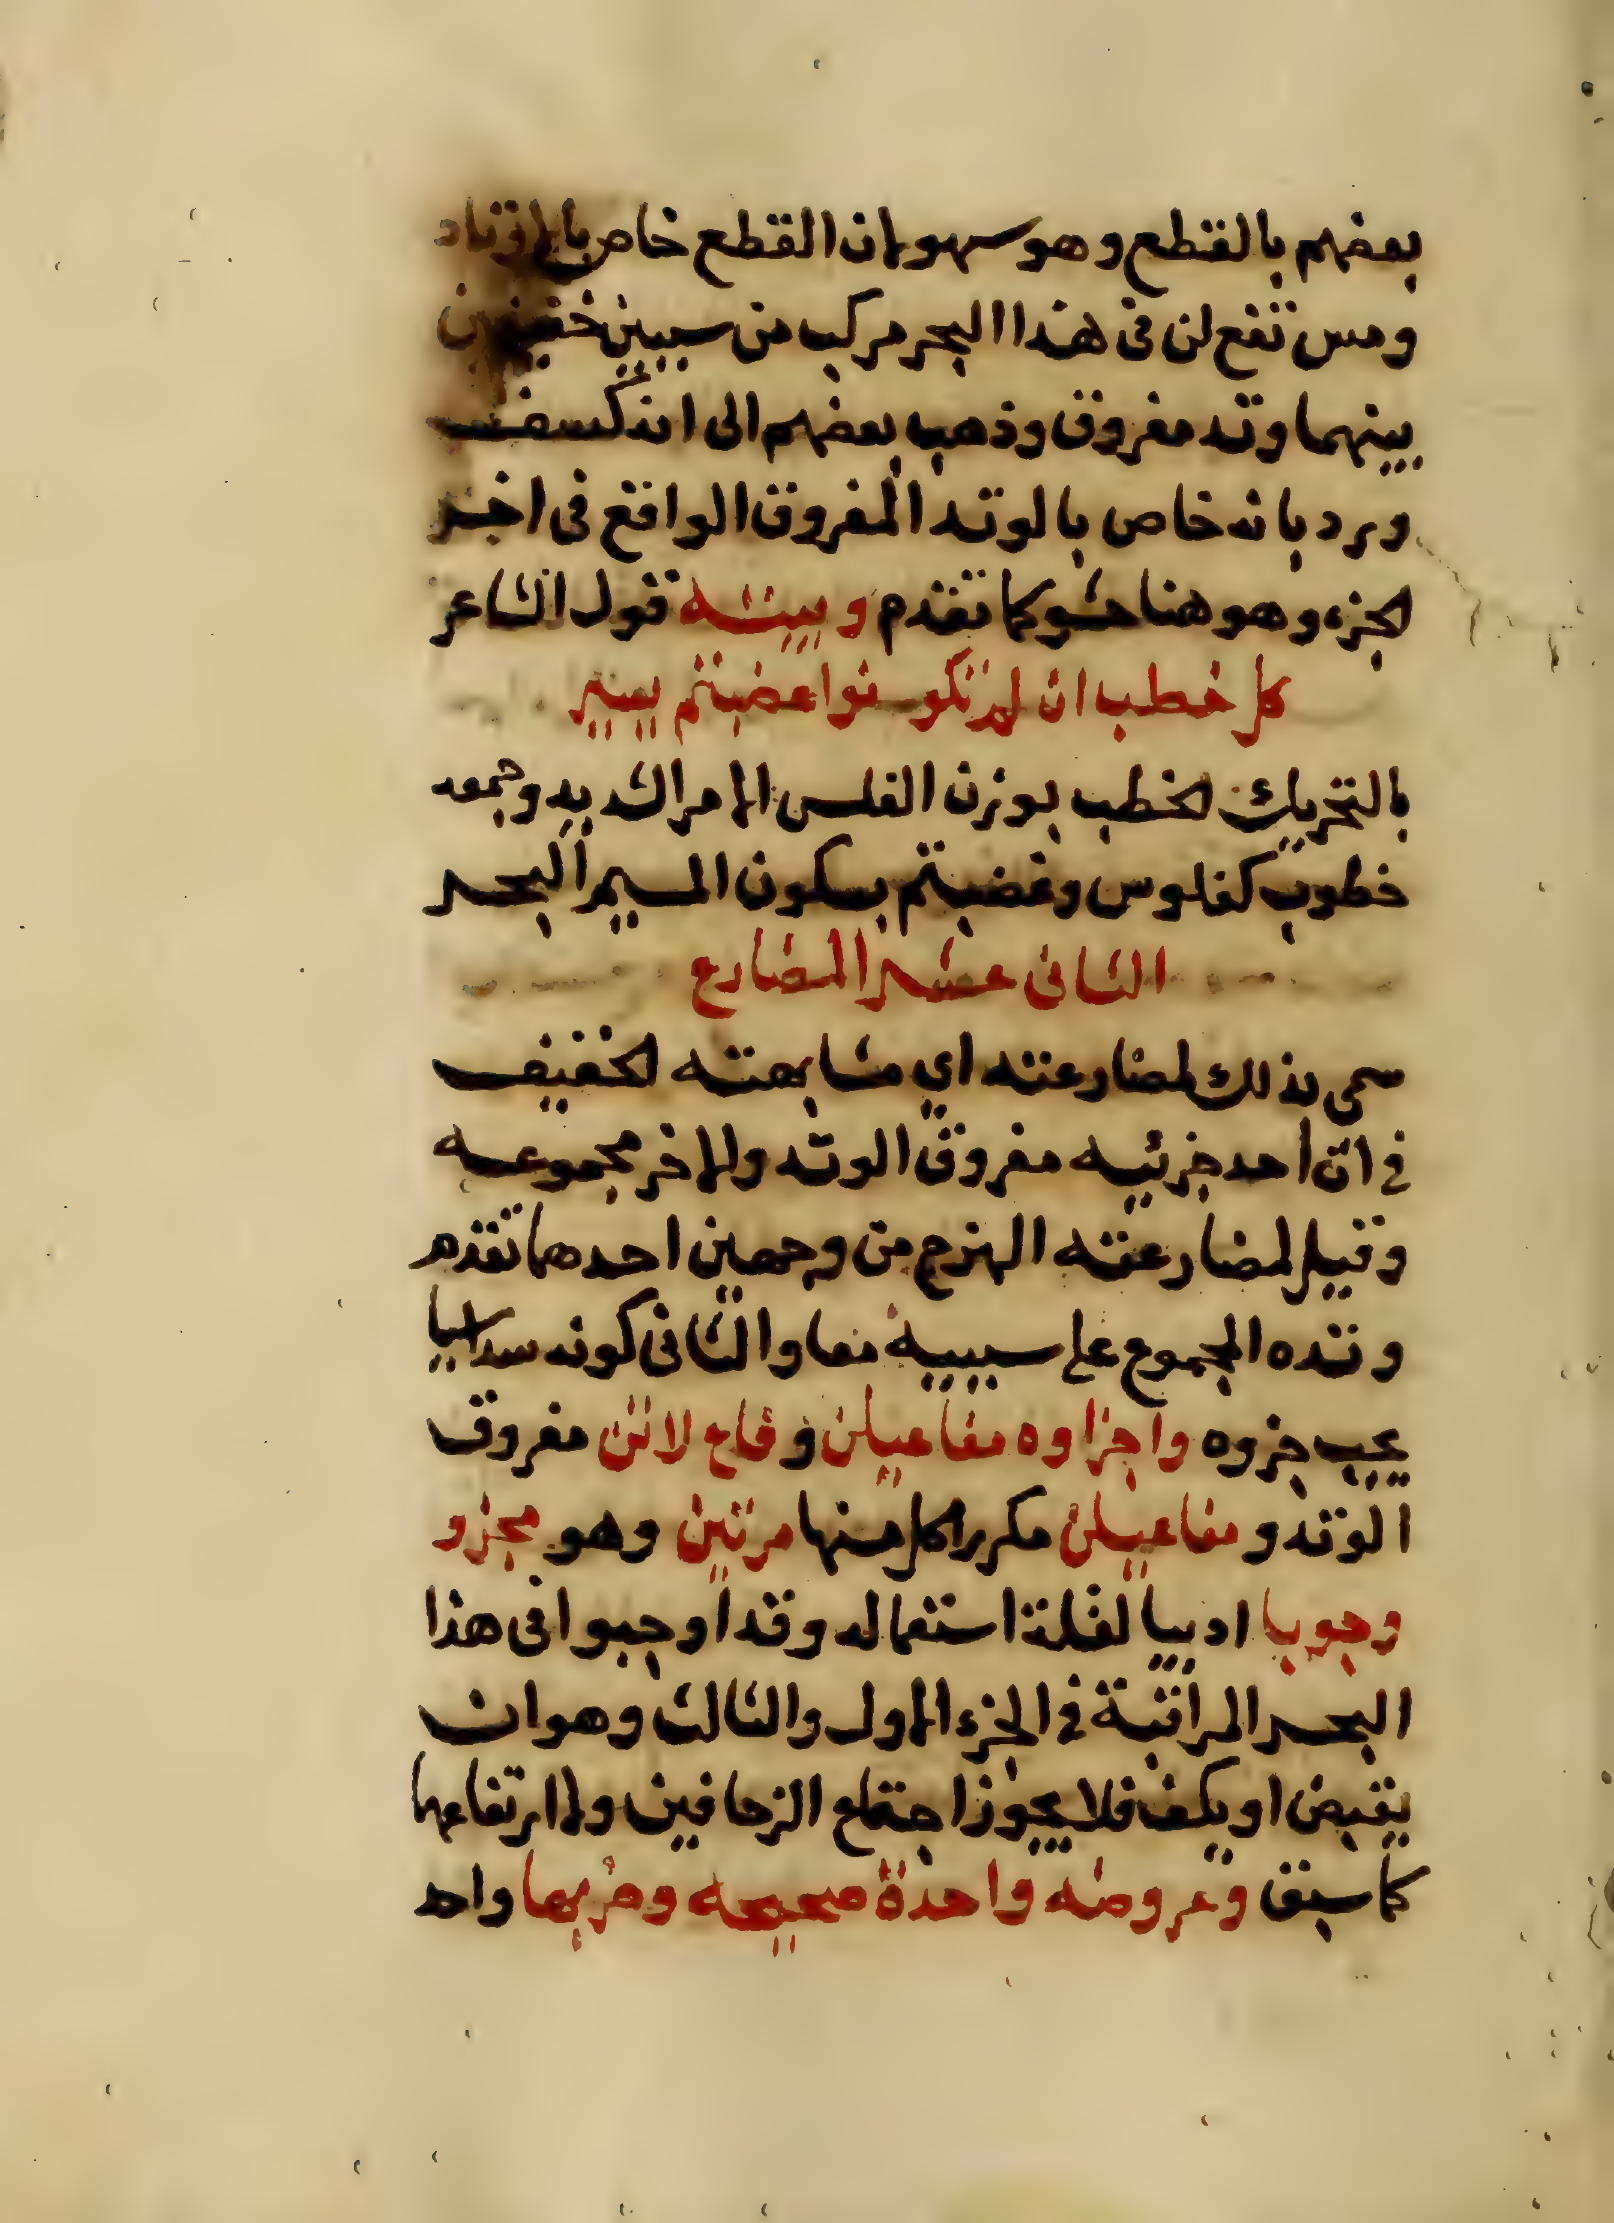 بعضهم بالقطع وهو سهو لان القطع خاص بالاوتاد
ومس تفع لن فى هذا البحر مركب من سببين خفيفين
بينهما وتد مفروق وذهب بعضهم الى انه كسف
ورد بانه خاص بالوتد المفروق الواقع فى اخر
الجزء وهو هنا حشو كما تقدم وبيته قول الشاعر
كل خطب ان لم تكونوا غضبتم يسير
بالتحريك الخطب بوزن الفلس الامر الشديد وجمعه
خطوب كفلوس وغضبتم بسكون الميم البحر
الثانى عشر المضارع
سمى بذلك لمضارعته اي مشابهته الخفيف
فى ان أحد جزئيه مفروق الوتد والاخر مجموعه
وقيل لمضارعته الهزج من وجهين احدهما تقدم
وتده المجموع على سببيه معا والثانى كونه سداسيا
يجب جزوه واجزاوه مفاعيلن وفاع لاتن مفروق
الوتد ومفاعيلن مكررا كل منها مرتين وهو مجزو
وجوبا ادبيا لقلة استعماله وقد أوجبوا فى هذا
البحر المراقبة فى الجزء الاول والثالث وهو ان
يقبض او يكف فلا يجوز اجتماع الزحافين ولا ارتفاعهما
كما سبق وعروضه واحدة صحيحه وضربها واحد